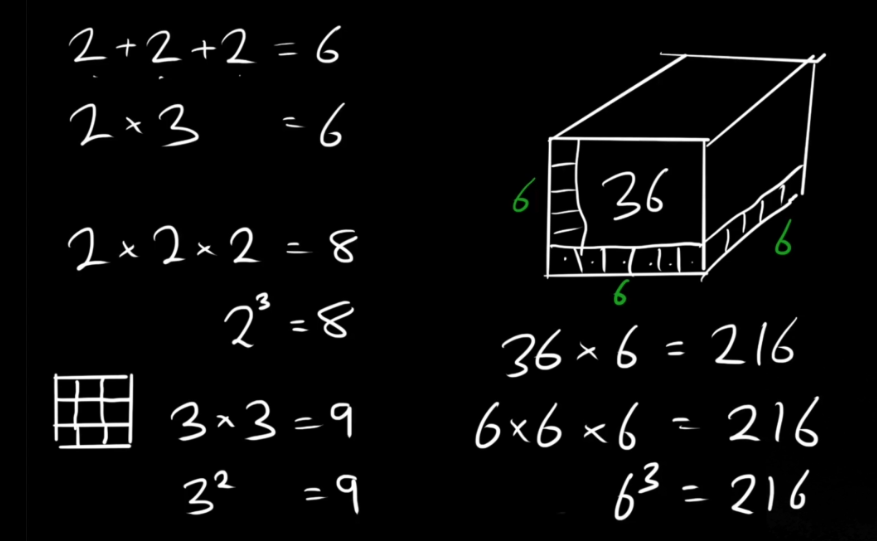 2 + 2 + 2 = 6
2 × 3 = 6
2 × 2 × 2 = 8
2³ = 8
3 × 3 = 9
3² = 9
6
36
6
6
36 × 6 = 216
6 × 6 × 6 = 216
6³ = 216